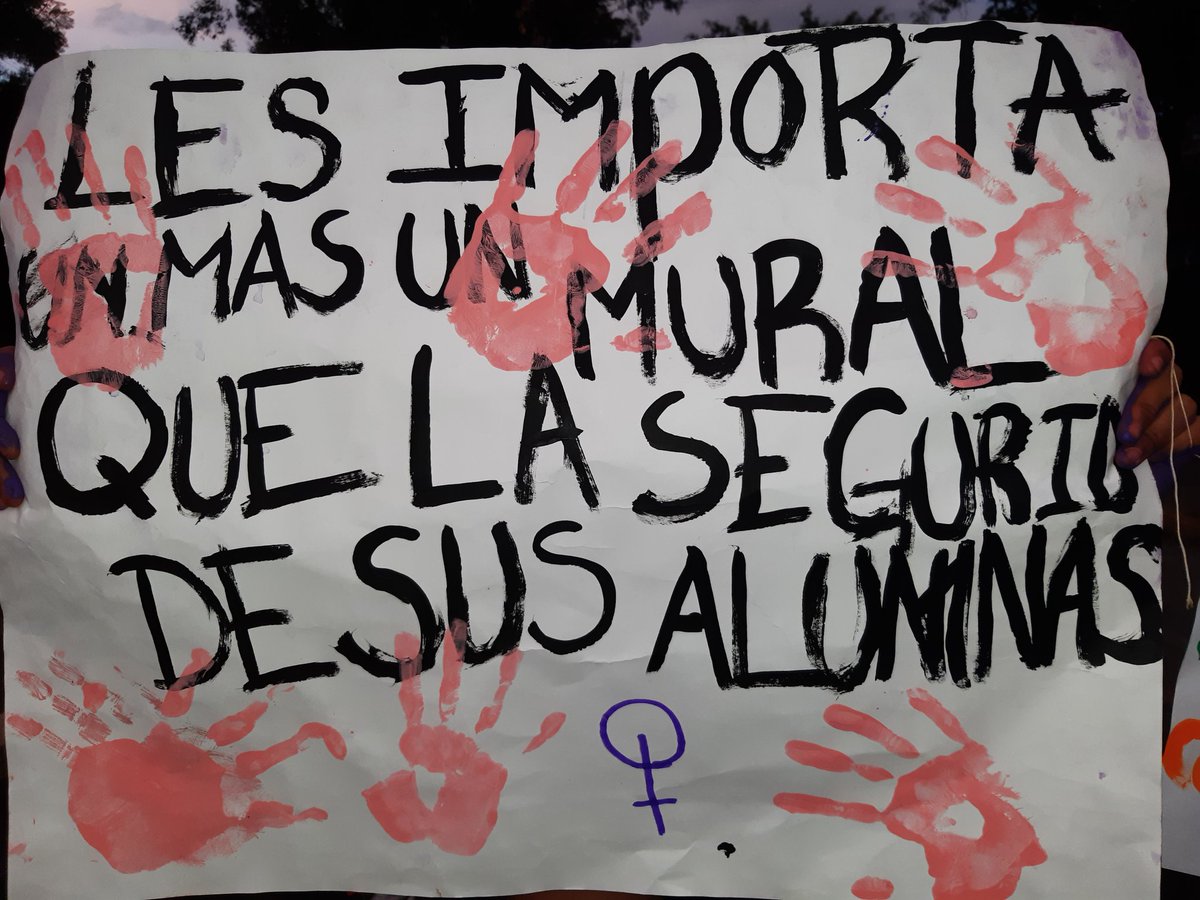 LES IMPORTA
UN MAS UN MURAL
QUE LA SEGURID
DE SUS ALUMNAS